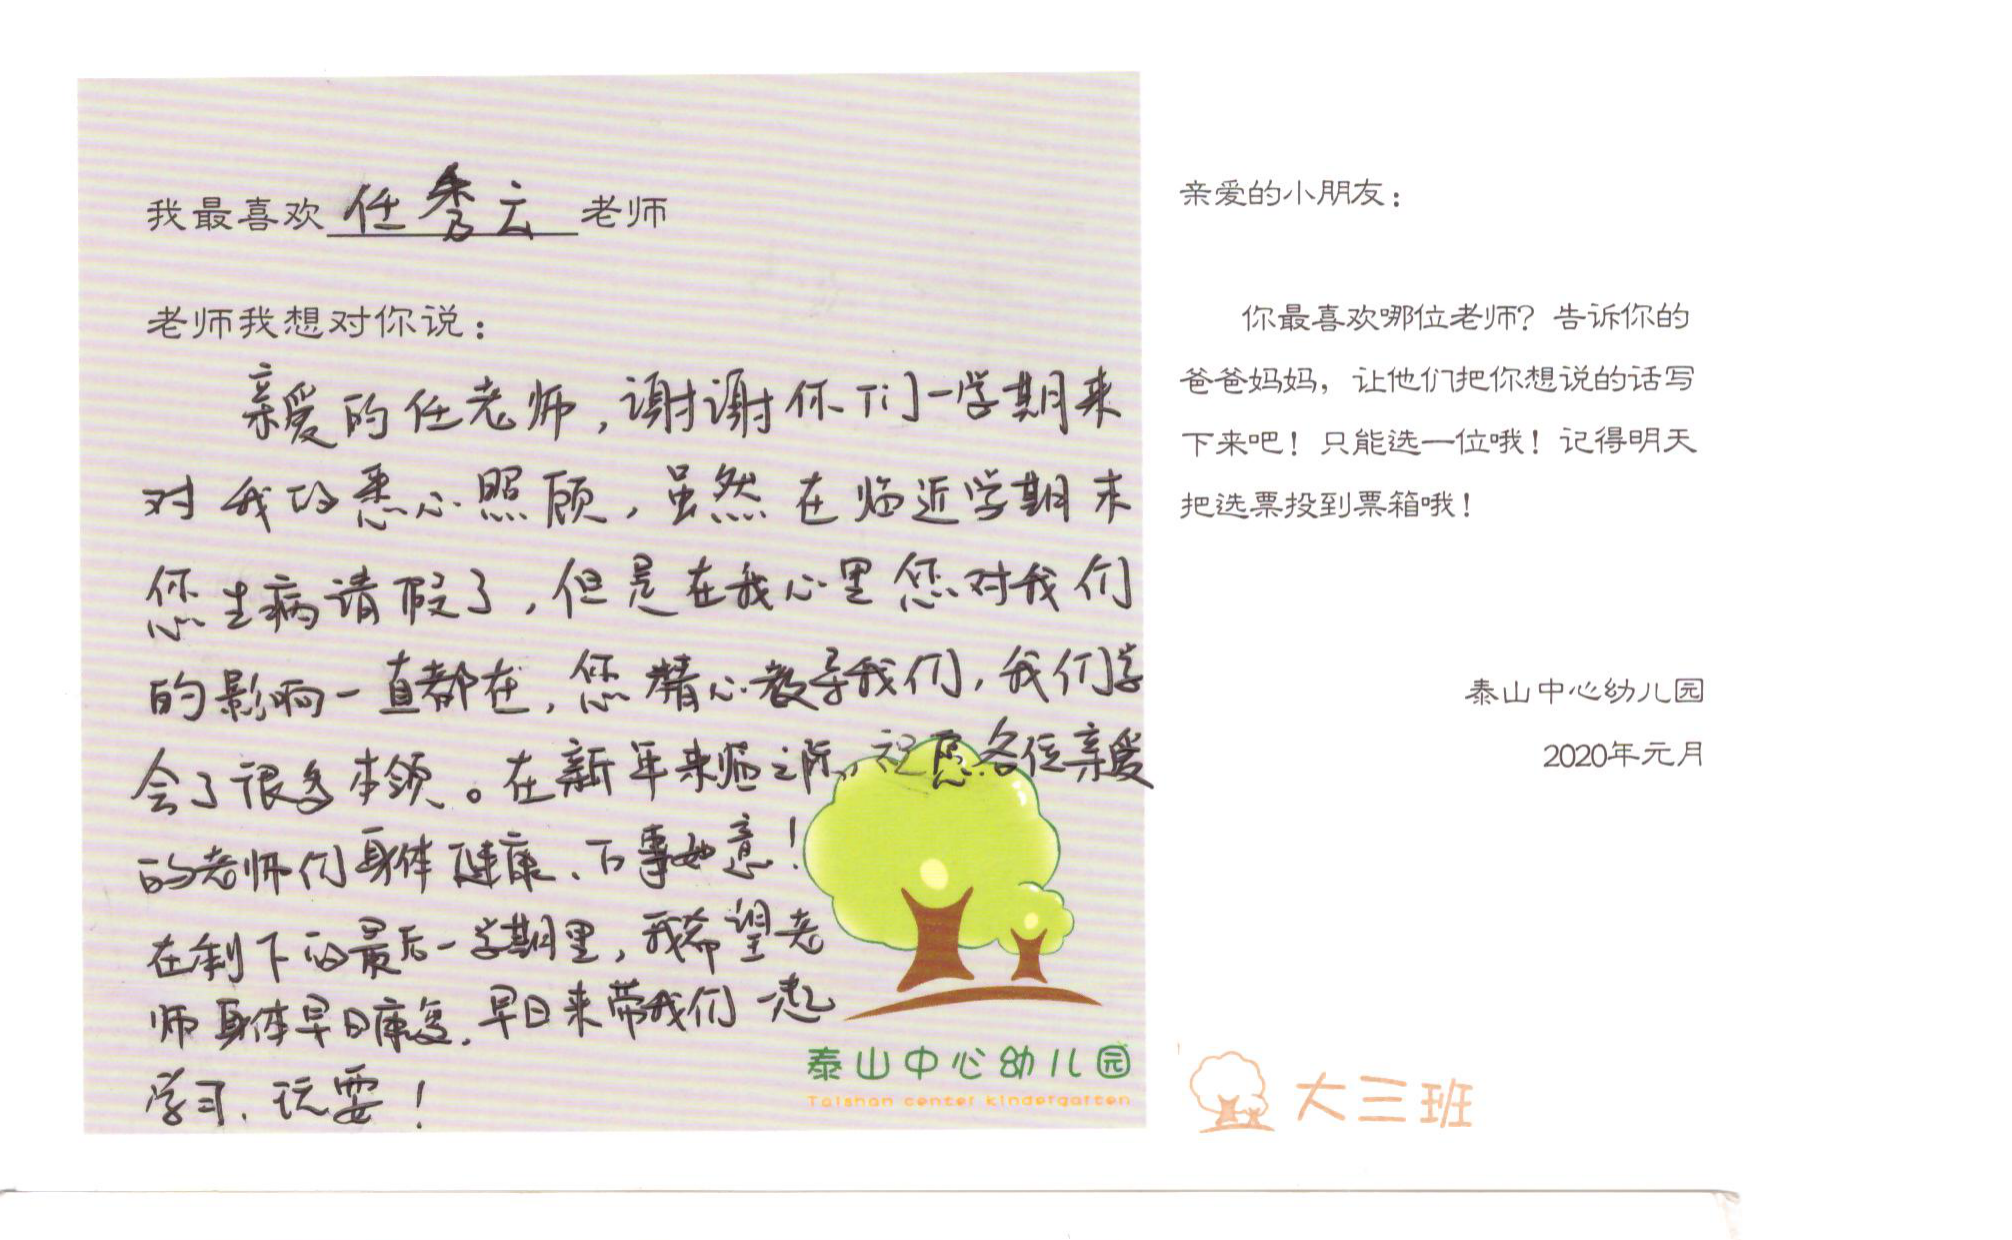 我最喜欢任秀云老师
老师我想对你说：
亲爱的任老师，谢谢你们一学期来
对我的悉心照顾，虽然在临近学期末
您生病请假了，但是在我心里您对我们
的影响一直都在，您精心教导我们，我们学
会了很多本领。在新年来临之际，祝愿各位亲爱
的老师们身体健康、万事如意！
在剩下的最后一学期里，我希望老
师身体早日康复，早日来带我们一起
学习、玩耍！
泰山中心幼儿园
Taishan center kindergarten
亲爱的小朋友：
你最喜欢哪位老师？告诉你的
爸爸妈妈，让他们把你想说的话写
下来吧！只能选一位哦！记得明天
把选票投到票箱哦！
泰山中心幼儿园
2020年元月
大三班